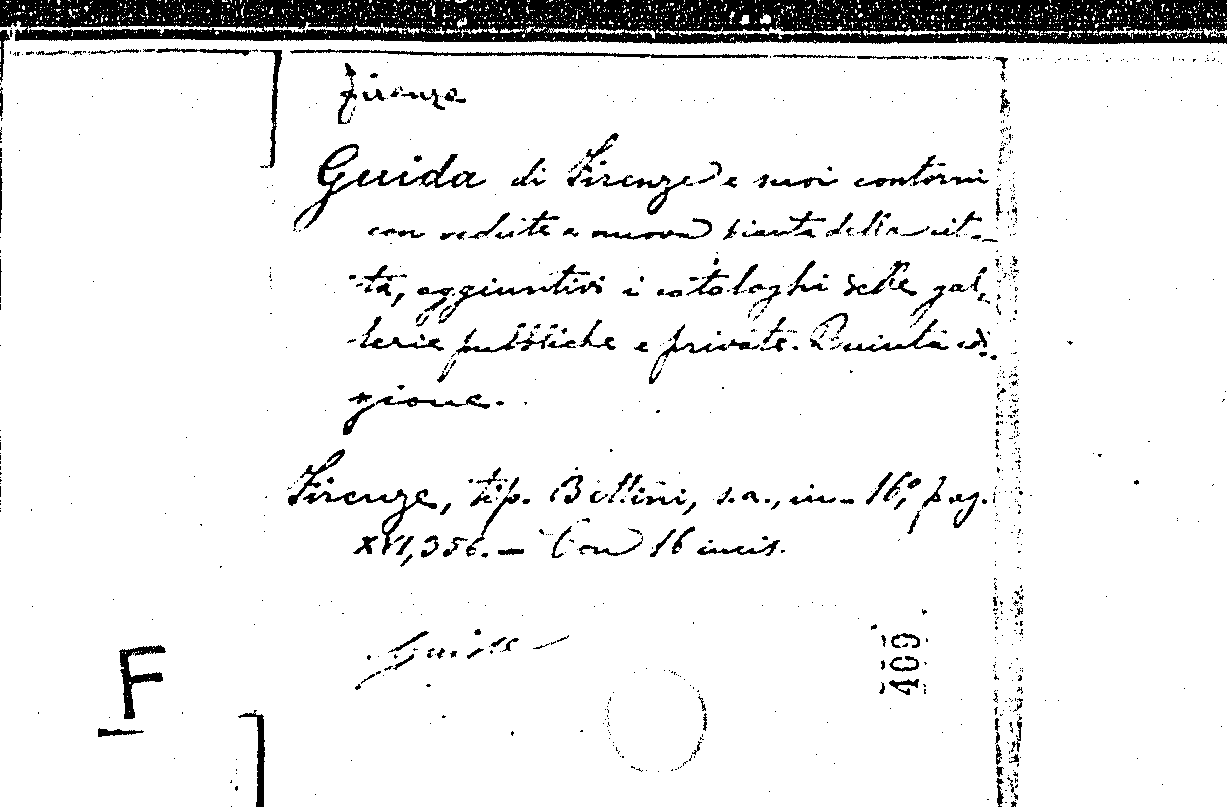 Firenze
Guida di Firenze e suoi contorni
con vedute e nuova pianta della cit-
tà, aggiuntivi i cataloghi delle gal-
lerie pubbliche e private. Quinta edi-
zione.
Firenze, tip. Bettini, s.a., in-16°, pag.
XVI, 356. — Con 16 incis.
Guide
409
F